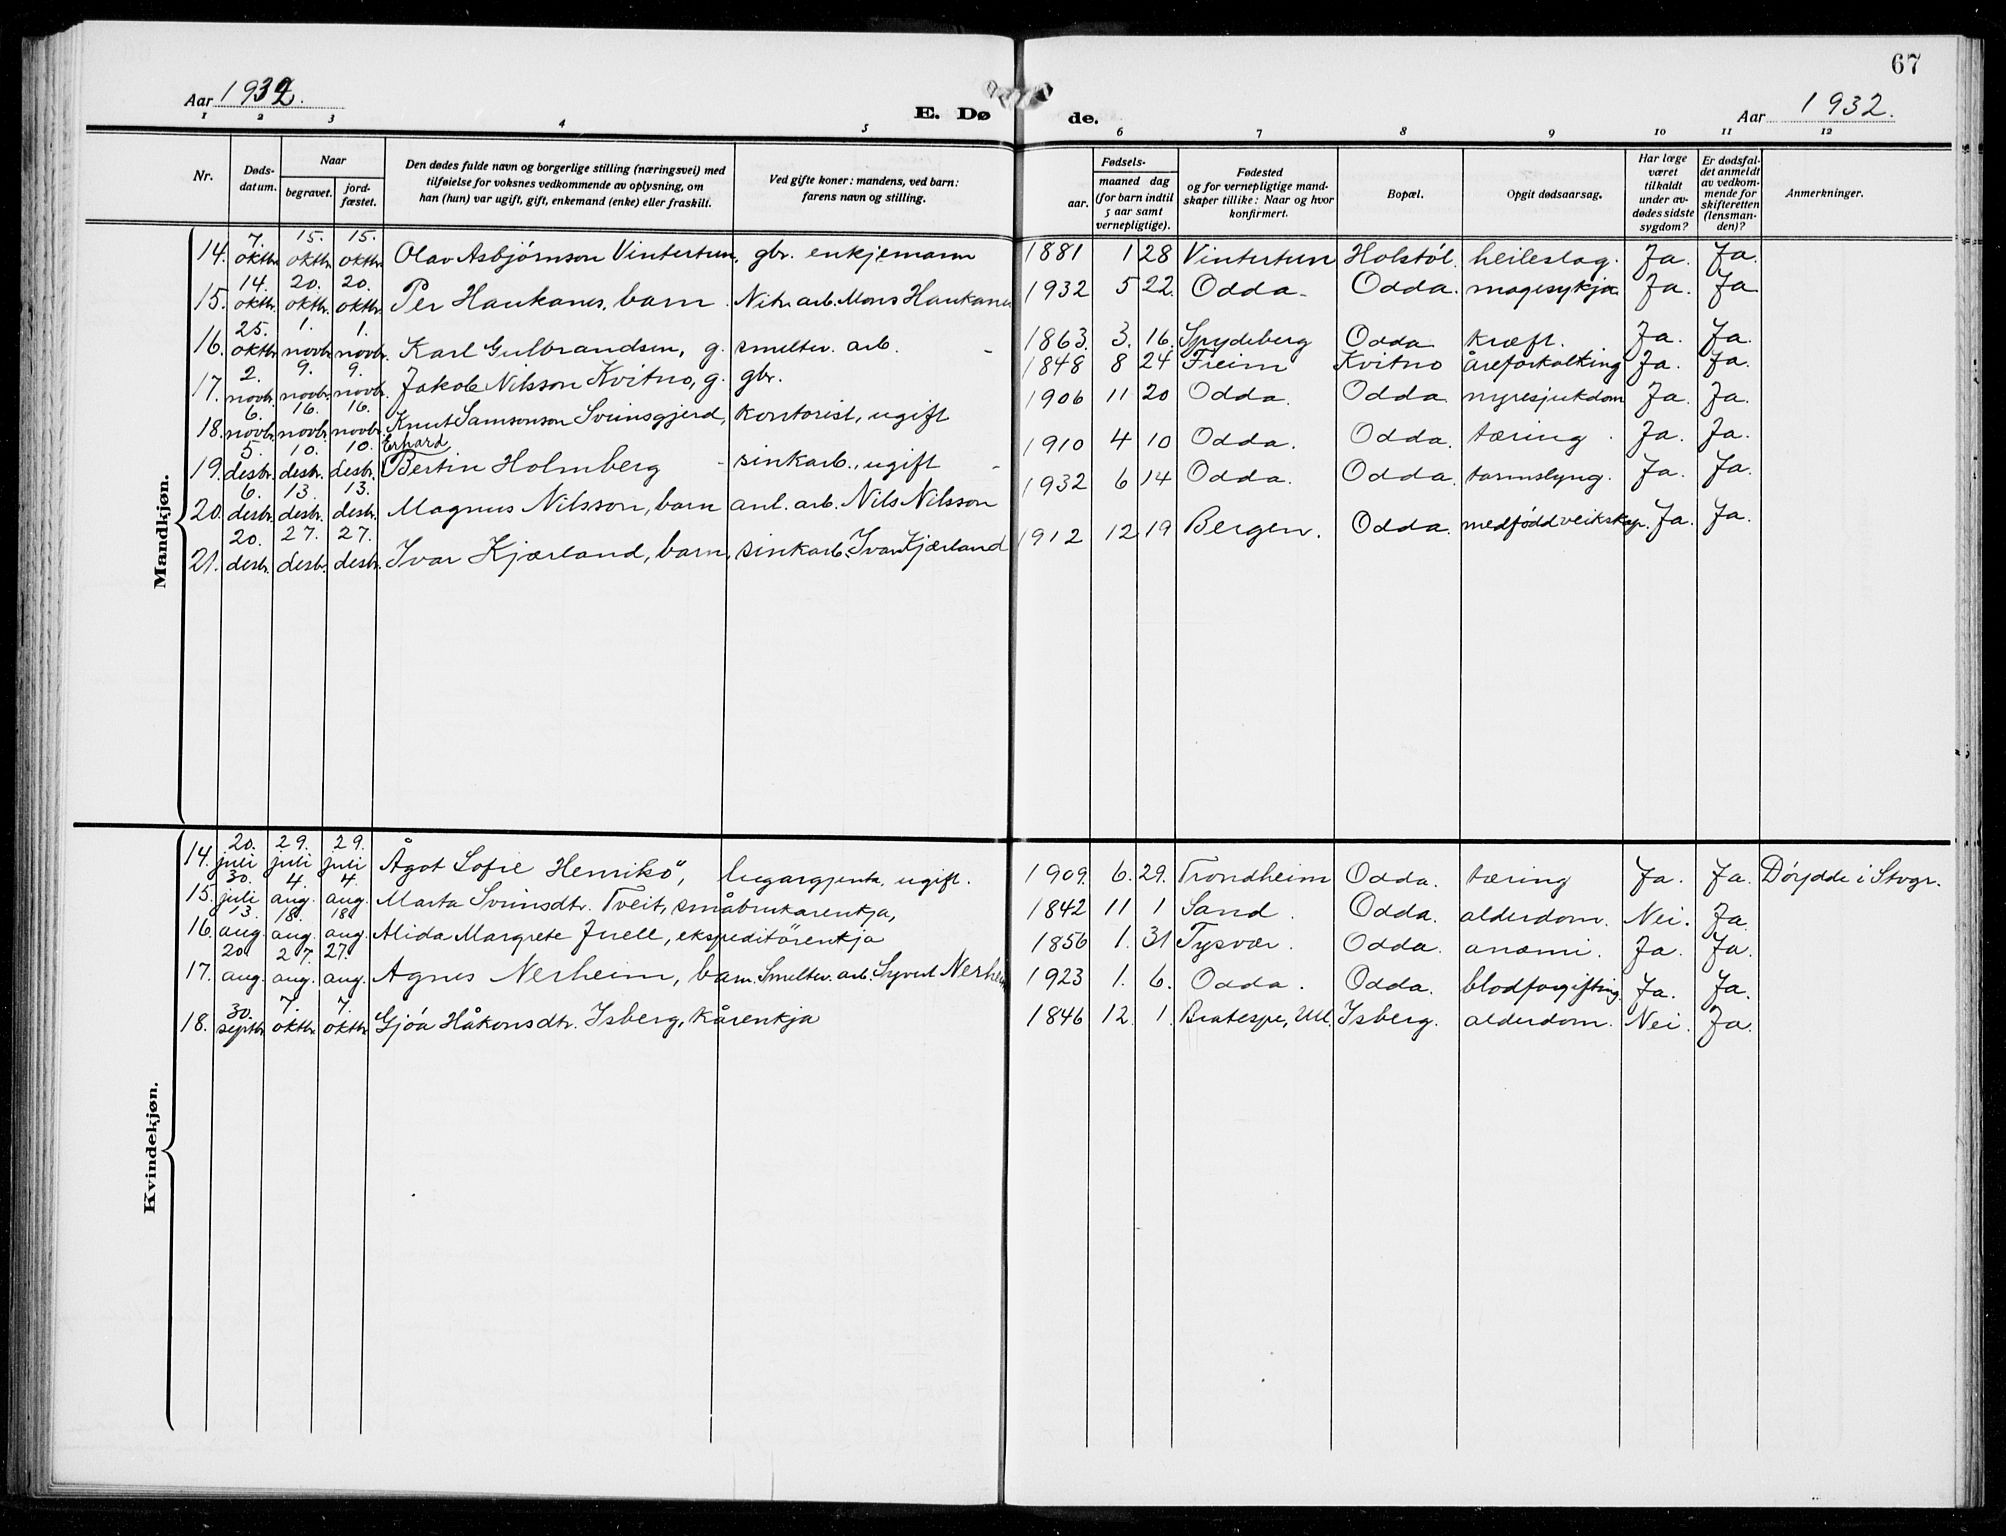 67
Aar 1932.
E. Døde.
Aar 1932.
1 2 3 4 5 6 7 8 9 10 11 12
Nr. | Døds-datum. | Naar begravet. | jord-fæstet. | Den dødes fulde navn og borgerlige stilling (næringsvei) med tilføielse for voksnes vedkommende av oplysning, om han (hun) var ugift, gift, enkemand (enke) eller fraskilt. | Ved gifte koner: mandens, ved barn: farens navn og stilling. | Fødsels- aar. | maaned dag (for barn indtil 5 aar samt vernepligtige). | Fødested og for vernepligtige mandskaper tillike: Naar og hvor konfirmert. | Bopæl. | Opgit dødsaarsag. | Har læge været tilkaldt under avdødes sidste sygdom? | Er dødsfaldet anmeldt av vedkommende for skifteretten (lensmanden)? | Anmerkninger.
Mandkjøn.
14. 7. oktbr. 15. oktbr. 15. oktbr. Olav Asbjørnson Vintertun, gbr. enkjemann 1881 1 28 Vintertun Holstøl. heileslag. Ja. Ja.
15. 14. oktbr. 20. oktbr. 20. oktbr. Per Haukanes, barn. Nitr. arb. Mons Haukanes 1932 5 22. Odda. Odda. magesykja Ja. Ja
16. 25. oktbr. 1. novbr. 1. novbr. Karl Gulbrandsen, g. smeltev. arb. 1863. 3. 16. Spydeberg Odda kræft. Ja. Ja.
17. 2. novbr. 9. novbr. 9. novbr. Jakob Nilsson Kvitno, g. gbr. 1848 8 24 Freim Kvitno åreforkalking Ja. Ja.
18. 6. novbr. 16. novbr. 16. novbr. Knut Samsonson Svinsgjerd, kontorist, ugift 1906 11 20 Odda. Odda. nyresjukdom Ja. Ja.
19. 5. desbr. 10. desbr. 10. desbr. Erhard Bertin Holmberg sinkarb., ugift 1910 4 10 Odda. Odda. tæring. Ja. Ja.
20. 6. desbr. 13. desbr. 13. desbr. Magnus Nilsson, barn anl. arb. Nils Nilsson 1932 6 14 Odda. Odda. tarmslyng. Ja. Ja.
21. 20. desbr. 27. desbr. 27. desbr. Ivar Kjærland, barn, sinkarb. Ivar Kjærland 1912 12 19 Bergen. Odda. medfødd veikskap. Ja. Ja.
Kvindekjøn.
14. 20. juli 29. juli 29. juli Ågot Sofie Henriksö, lugargjenta, ugift. 1909. 6. 29. Trondheim Odda. tæring Ja. Ja. Dørydde i Stvgr.
15. 30. juli 4. aug. 4. aug. Marta Svinsdtr. Tveit, småbrukarenkja, 1842 11 1 Sand. Odda. alderdom. Nei. Ja.
16. 13. aug. 18. aug. 18. aug. Alida Margrete Juell, ekspeditörenkja 1856 1. 31 Tysvær. Odda. anæmi. Ja. Ja.
17. 20. aug. 27. aug. 27. aug. Agnes Nerheim, barn. Smeltev. arb. Syvert Nerheim 1923 1. 6. Odda. Odda. blodforgiftning. Ja. Ja.
18. 30. septbr. 7. oktbr. 7. oktbr. Gjøa Håkonsdtr. Isberg, kårenkja 1846 12. 1. Bratespe, Ull. Isberg. alderdom. Nei. Ja.